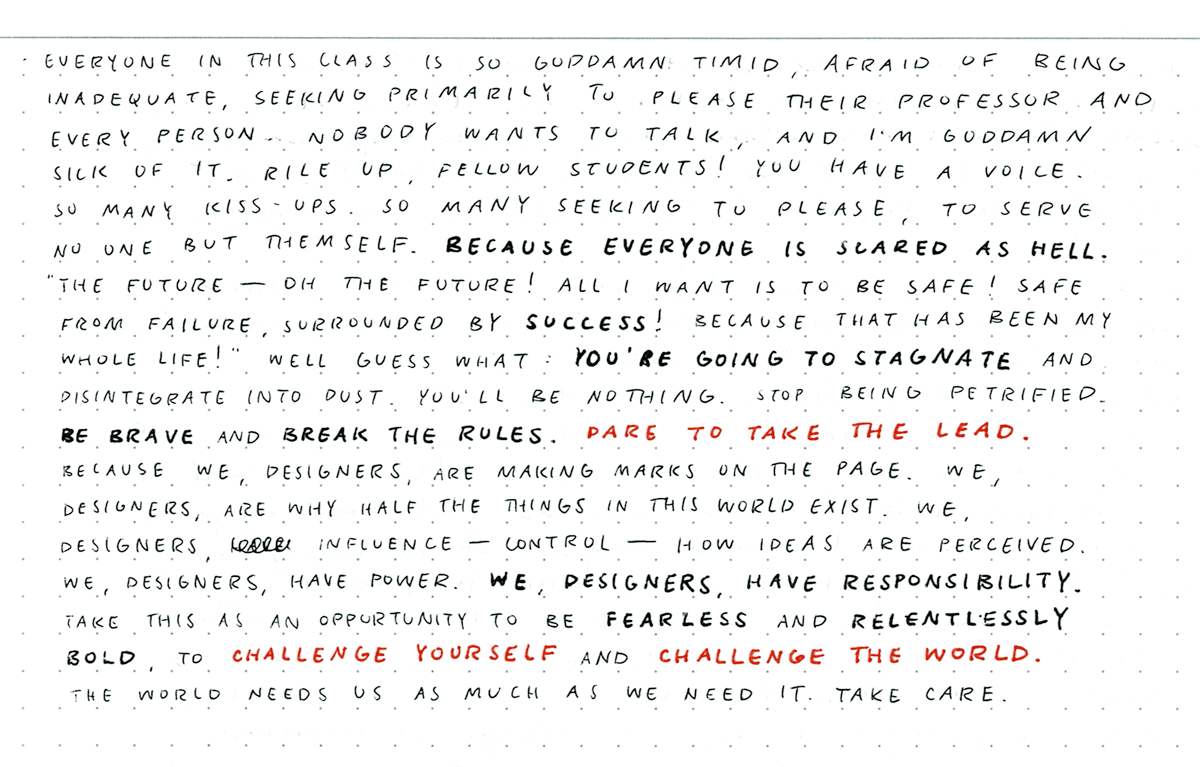 EVERYONE IN THIS CLASS IS SO GODDAMN TIMID, AFRAID OF BEING
INADEQUATE, SEEKING PRIMARILY TO PLEASE THEIR PROFESSOR AND
EVERY PERSON. NOBODY WANTS TO TALK, AND I'M GODDAMN
SICK OF IT. RILE UP, FELLOW STUDENTS! YOU HAVE A VOICE.
SO MANY KISS-UPS. SO MANY SEEKING TO PLEASE, TO SERVE
NO ONE BUT THEMSELF. BECAUSE EVERYONE IS SCARED AS HELL.
"THE FUTURE — OH THE FUTURE! ALL I WANT IS TO BE SAFE! SAFE
FROM FAILURE, SURROUNDED BY SUCCESS! BECAUSE THAT HAS BEEN MY
WHOLE LIFE!" WELL GUESS WHAT: YOU'RE GOING TO STAGNATE AND
DISINTEGRATE INTO DUST. YOU'LL BE NOTHING. STOP BEING PETRIFIED.
BE BRAVE AND BREAK THE RULES. DARE TO TAKE THE LEAD.
BECAUSE WE, DESIGNERS, ARE MAKING MARKS ON THE PAGE. WE,
DESIGNERS, ARE WHY HALF THE THINGS IN THIS WORLD EXIST. WE,
DESIGNERS, INFLUENCE — CONTROL — HOW IDEAS ARE PERCEIVED.
WE, DESIGNERS, HAVE POWER. WE, DESIGNERS, HAVE RESPONSIBILITY.
TAKE THIS AS AN OPPORTUNITY TO BE FEARLESS AND RELENTLESSLY
BOLD, TO CHALLENGE YOURSELF AND CHALLENGE THE WORLD.
THE WORLD NEEDS US AS MUCH AS WE NEED IT. TAKE CARE.